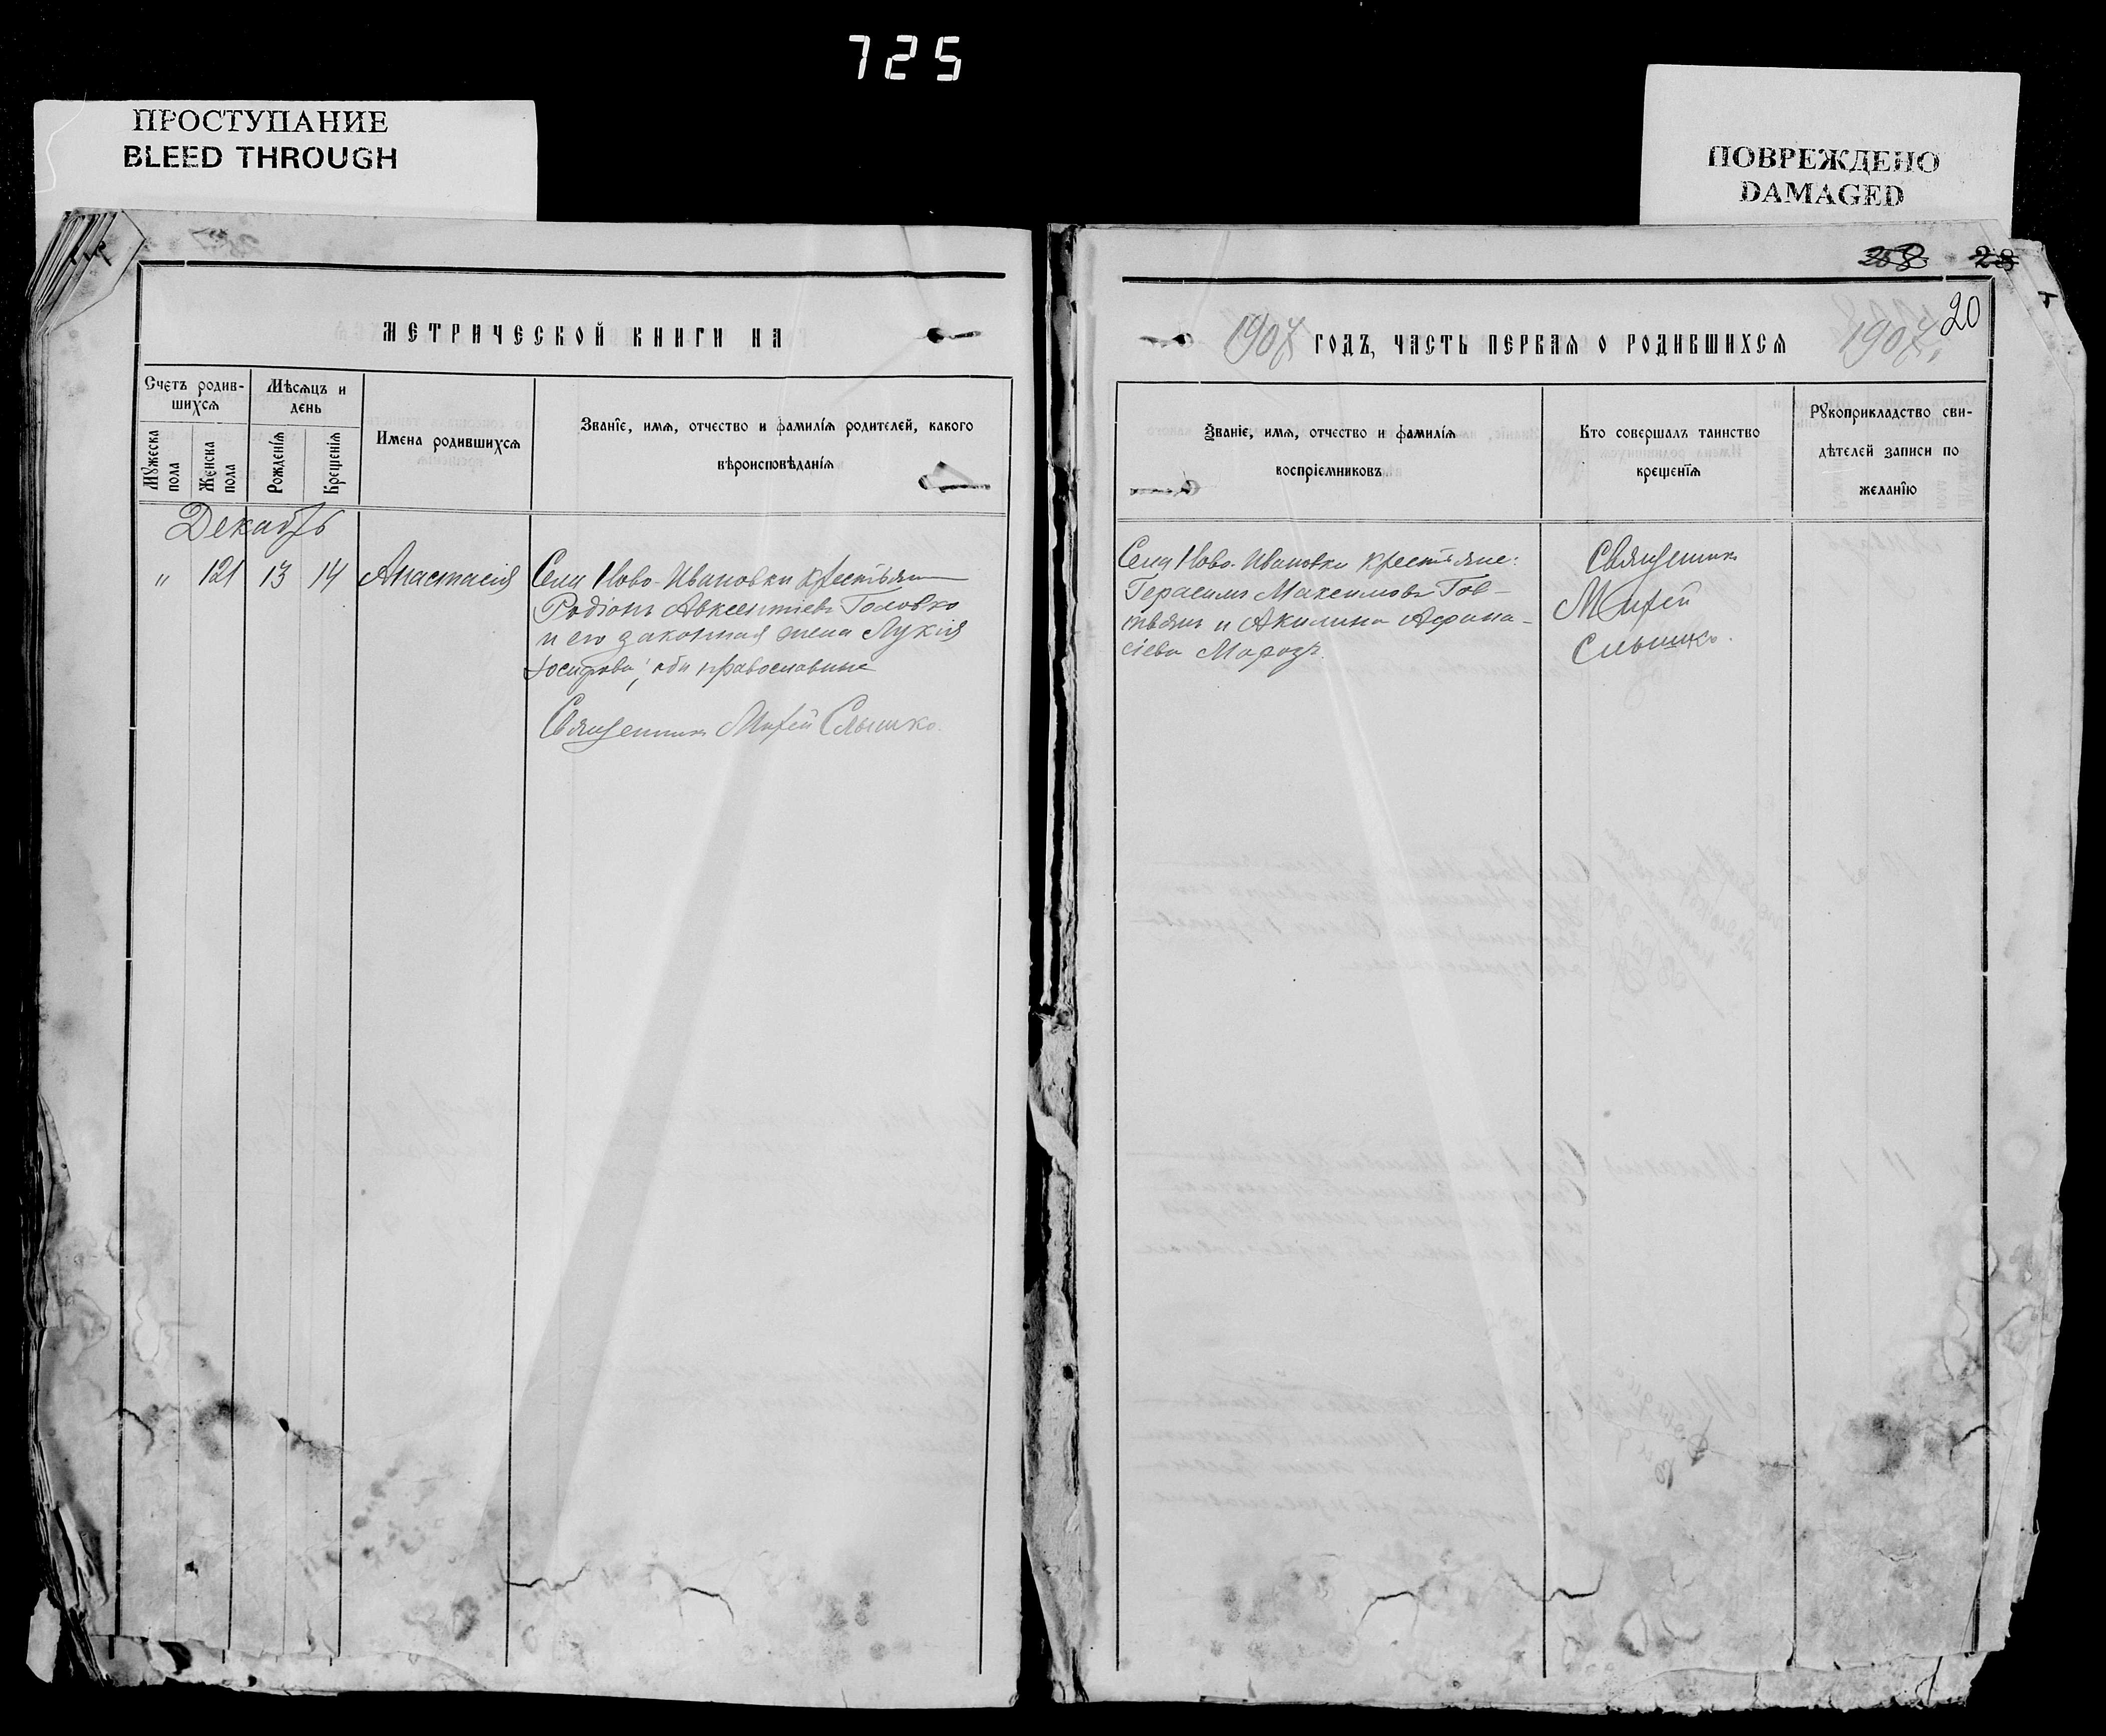 725
ПРОСТУПАНИЕ
BLEED THROUGH
ПОВРЕЖДЕНО
DAMAGED
258 28
20
МЕТРИЧЕСКОЙ КНИГИ НА
1907 ГОДЪ, ЧАСТЬ ПЕРВАЯ О РОДИВШИХСЯ 1907.
Счетъ родив-
шихся
Мужеска пола
Женска пола
Мѣсяцъ и
день
Рожденія
Крещенія
Имена родившихся
Званіе, имя, отчество и фамилія родителей, какого
вѣроисповѣданія
Званіе, имя, отчество и фамилія
воспріемниковъ
Кто совершалъ таинство
крещенія
Рукоприкладство сви-
дѣтелей записи по
желанію
Декабрь
" 121 13 14 Анастасія
Села Ново-Ивановки крестьянинъ
Родіонъ Авксентіевъ Головко
и его законная жена Лукія
Іосифова, оба православные
Священникъ Мифей Слышко.
Села Ново-Ивановки крестьяне:
Герасимъ Максимовъ Гов-
твянъ и Акилина Афана-
сіева Морозъ.
Священникъ
Мифей
Слышко.